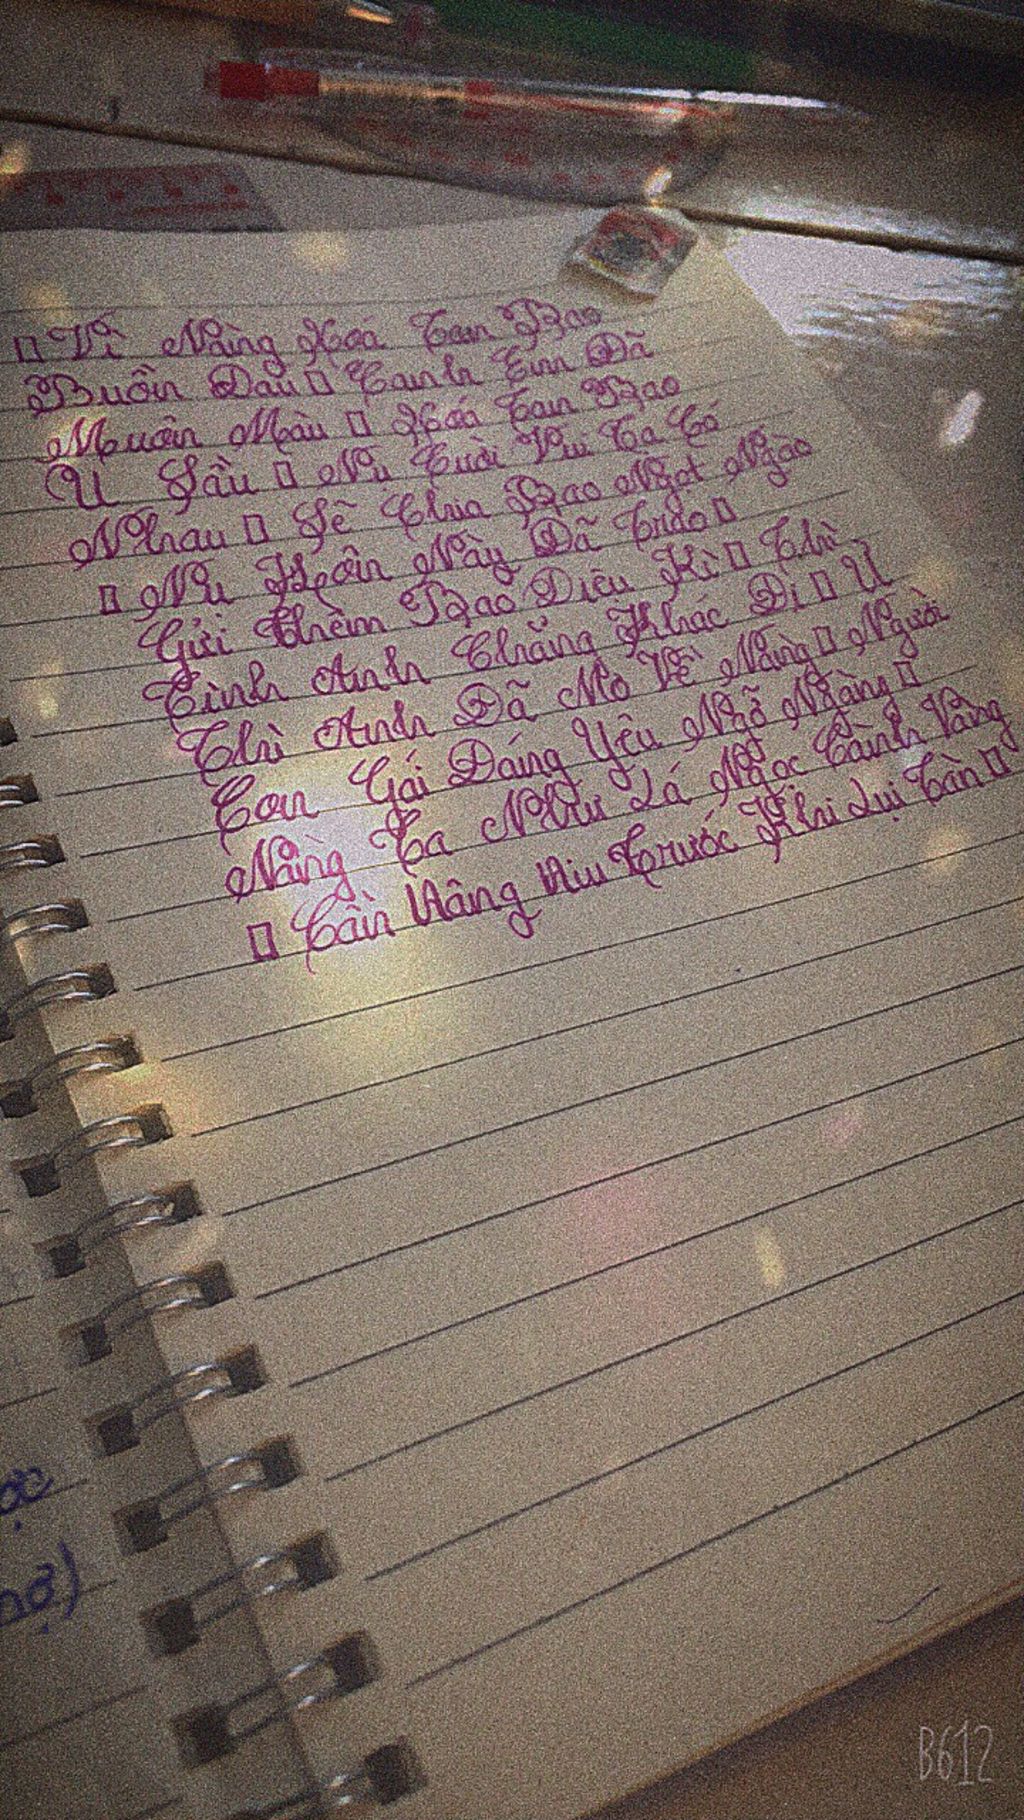 ▯ Vì Nàng Xoá Tan Bao
Buồn Đau ▯ Canh Tim Đã
Muôn Màu ▯ Xóa Tan Bao
U Sầu ▯ Nụ Cười Vui Ta Có
Nhau ▯ Sẽ Chia Bao Ngọt Ngào
▯ Nụ Hôn Này Đã Trao ▯
Gửi Thêm Bao Diệu Kì ▯ Thì
Tình Anh Chẳng Khác Đi ▯ Vì
Thì Anh Đã Mơ Về Nàng ▯ Người
Con Gái Đáng Yêu Ngỡ Ngàng ▯
Nàng Ta Như Lá Ngọc Cành Vàng
▯ Cần Nâng Niu Trước Khi Lụi Tàn ▯
B612